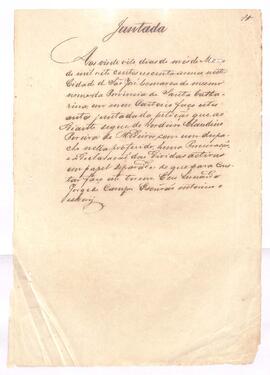 Juntada
Aos vinte oito dias do mes de Março
de mil oito centos secenta annos nesta
Cidade de São José Comarca do mesmo
nome da Provincia de Santa Catha
rina, em meu Cartorio faço a estes
autos juntada da petição que ao
diante segue de Claudino
Pereira de com um despa
cho nella proferido, huma Procuração
e a Declaração das Dividas activas
em papel separado; do que para cons
tar faço este termo. Eu
Jorge de Campos Escrivão interino o
escrevy